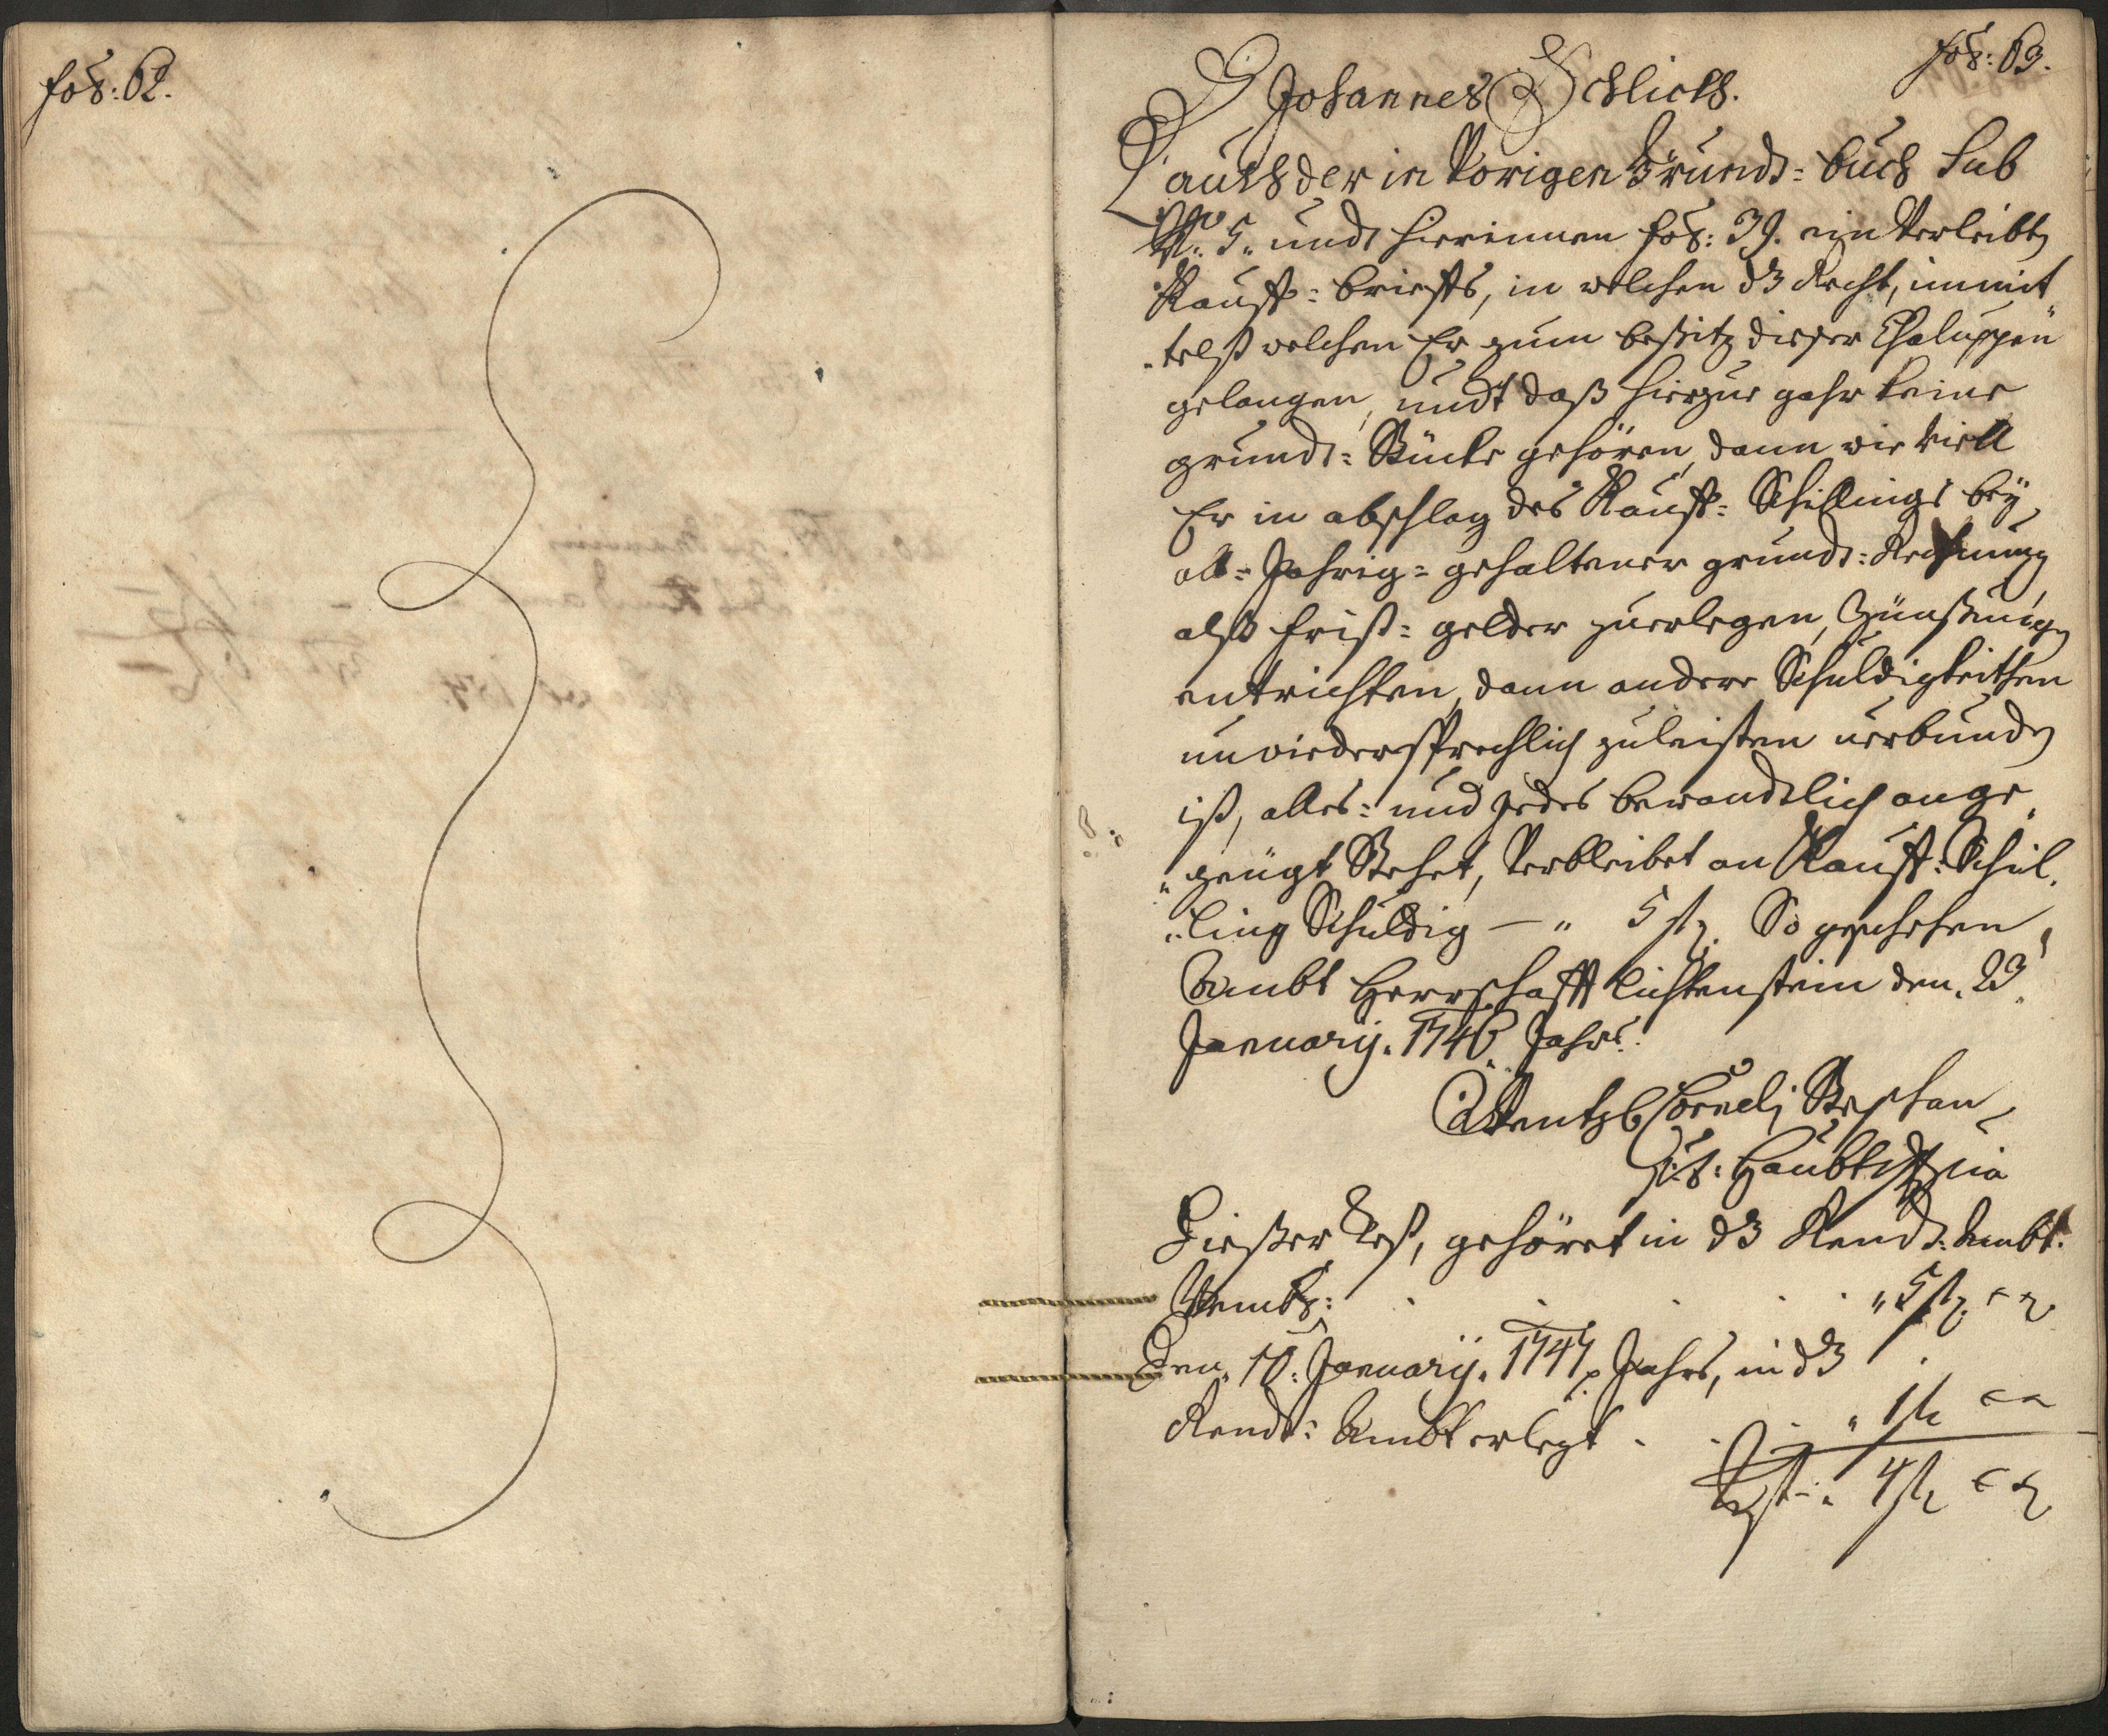 fol: 62.
fol: 63.
Johannes Schlicht.
Lauth der in Vorigen Grundt= buch Sub
No. 5. undt hierinnen fol: 39. ein Verleibten
Kauff= brieffs, in welchen dz Recht, inmit
telst welchen Er zum besitz dießer Chaluppen
gelangen, undt daß hierzue gahr keine
grundt= Stücke gehören, dann wie viell
Er in abschlag des Kauff= Schillings bey
all= Jahrig= gehaltener grundt= Rechnung
alß frist= gelder zuerlegen, Zünßungen
entrichten, dann andere Schuldigkeithen
unwiedersprechlich zuleisten verbunden
ist, alles= und jedes bewandtlich ange
zeügt Stehet, Verbleibet an Kauff= Schil
ling Schuldig — 5 fl. So geschehen
Ambt Herrschafft Lichtenstein den 23
January. 1746. Jahrs.
Wentzl Corneli Stephan
Haubtm
Dießer Rest, gehöret in dz Rendt= Ambt.
5 fl
Den 10. January. 1747. Jahrs, in dz
Rendt= Ambt erlegt . . 1 fl
Rest 4 fl